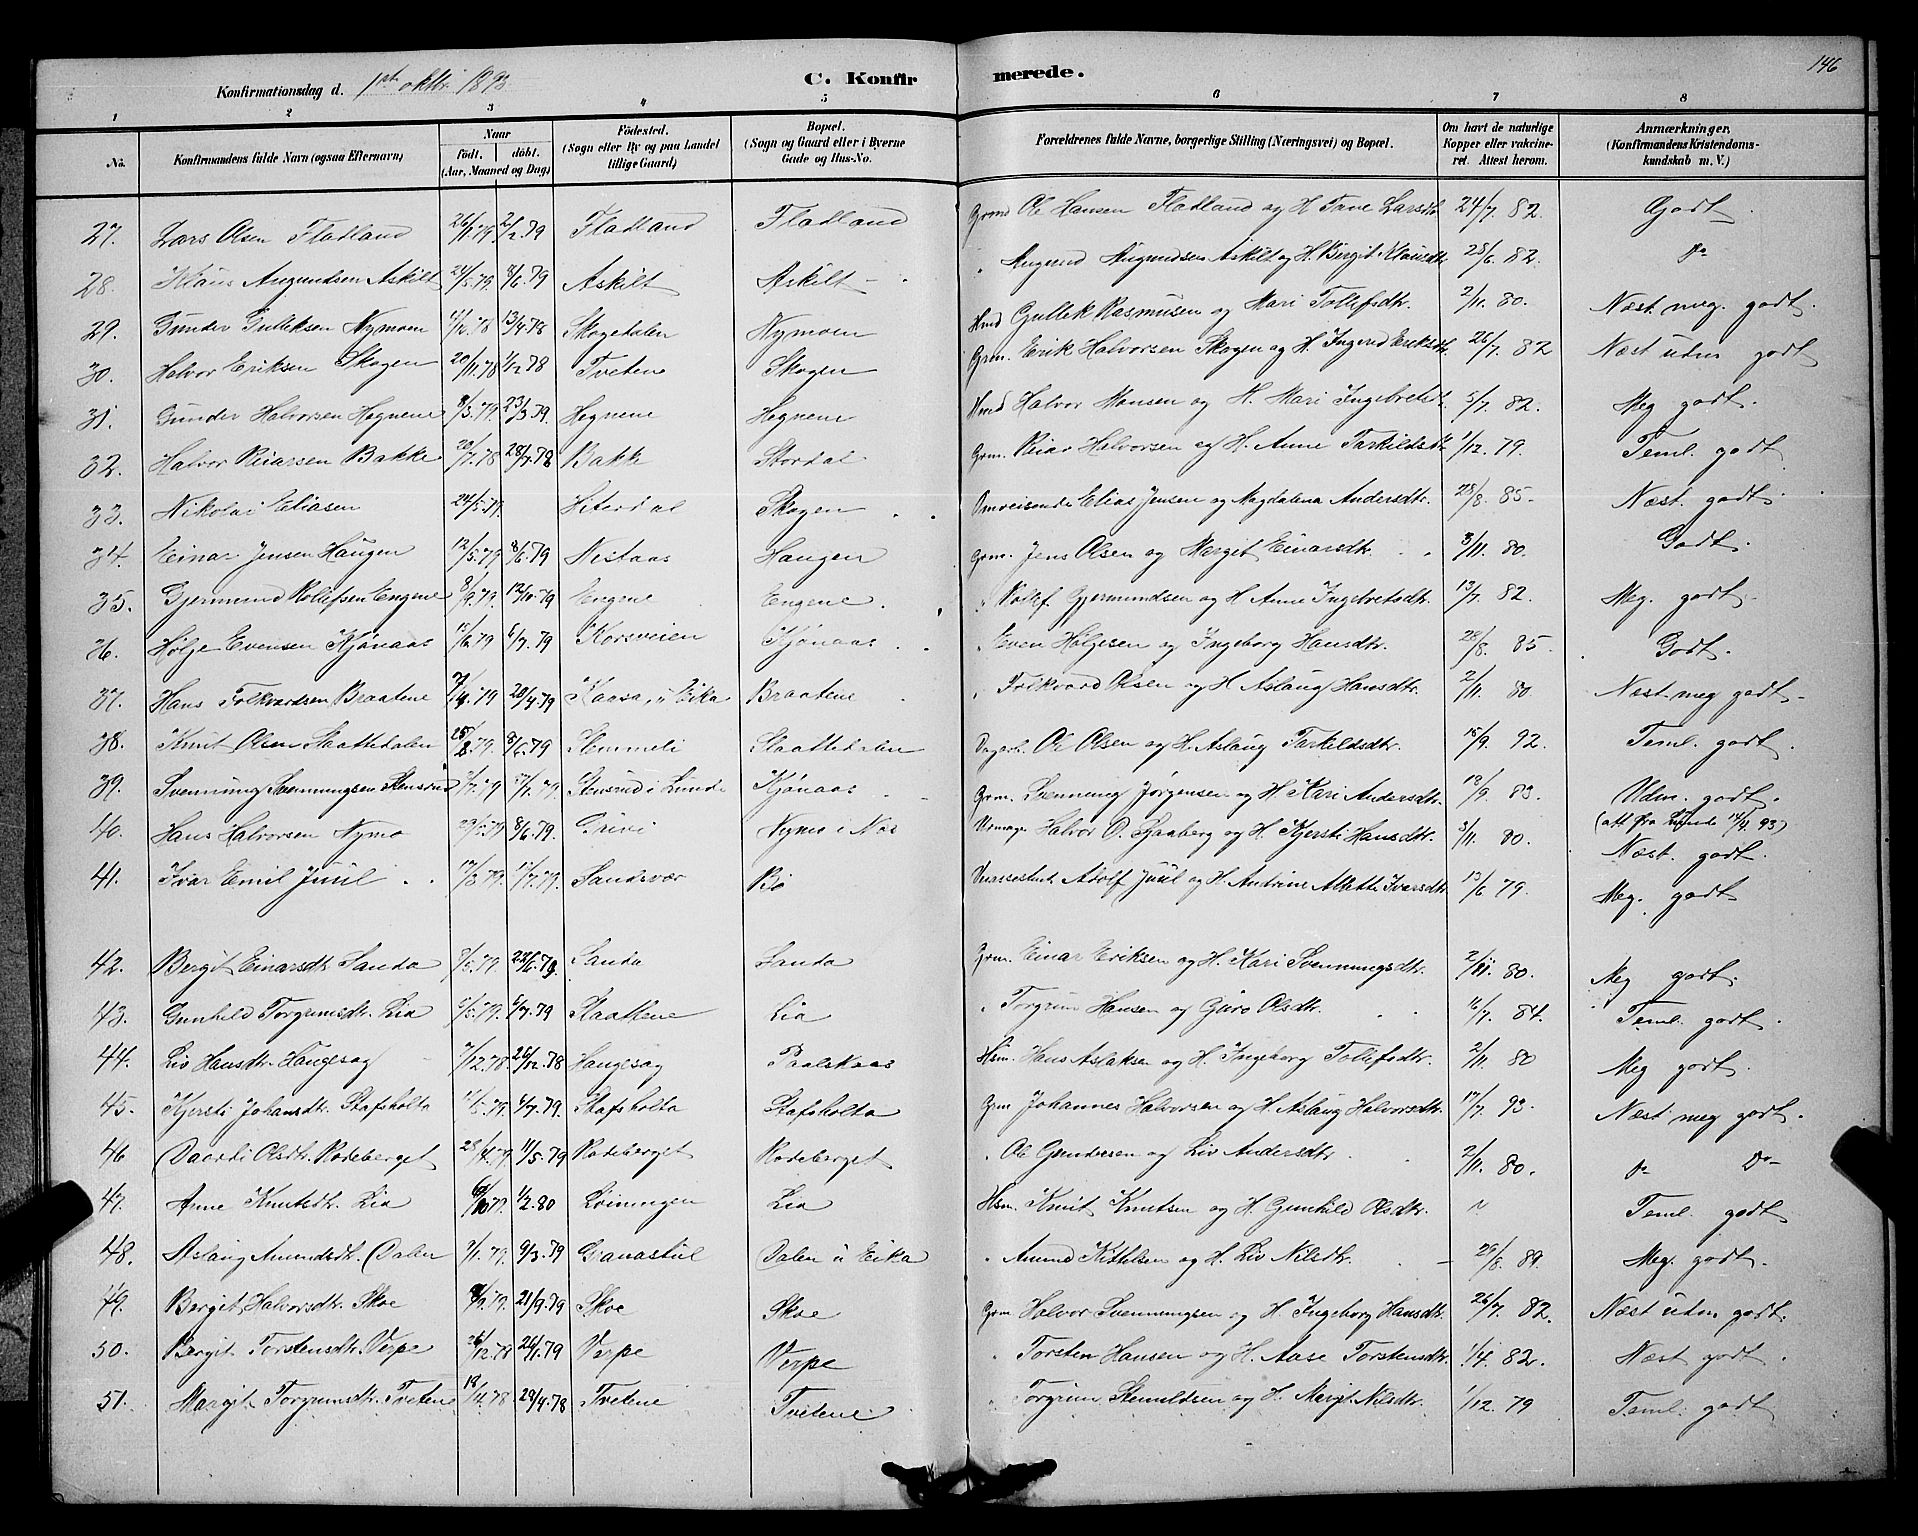 146
Konfirmationsdag d. 1ste oktbr. 1893. C. Konfirmerede.
1 2 3 4 5 6 7 8
No. Konfirmandens fulde Navn (ogsaa Efternavn) Naar födt, döbt. (Aar, Maaned og Dag) Födested. (Sogn eller By og paa Landet tillige Gaard) Bopæl. (Sogn og Gaard eller i Byerne Gade og Hus-No. Forældrenes fulde Navne, borgerlige Stilling (Næringsvei) og Bopæl. Om havt de naturlige Kopper eller vaccineret. Attest herom. Anmærkninger, (Konfirmandens Kristendomskundskab m. V.)
27. Lars Olsen Fladland 26/11.79 2/2.79 Fladland Fladland Grmd Ole Hansen Fladland og H. Tone Larsdtr 24/7. 82. Godt
28. Klaus Amundsen Askilt 24/5.79. 8/6.79 Askilt Askilt " Amund Amundsen Askilt og H. Birgit Klausdtr 28/6. 82. Do
29. Gunder Gulleksen Nymoen 13/4.78 Skogedalen Nymoen Hmd Gullek Rasmusen og Mari Tollefsdtr. 2/11. 80. Næst meg. godt.
30. Halvor Eriksen Skogen 20/11.78 1/12.78 Tvetene Skogen Grm. Erik Halvorsen Skogen og H. Ingerid Eriksdtr 26/7. 82 Næst udm godt
31. Gunder Halvorsen Hegnene 8/3.79 23/3.79. Hegnene Hegnene Hmd Halvor Monsen og H. Mari Ingebretsdtr 5/7. 82. Meg godt.
32. Halvor Reiarsen Bakke 20/7.78 28/7.78 Bakke Stordal Grm. Reiar Halvorsen og H. Anne Tarkildsdtr 1/12. 79. Teml. godt
33. Nikolai Eliasen 24/5.79. Hiterdal Skogen Omreisende Elias Jensen og Magdalena Andersdtr. 28/8. 85. Næst. godt.
34. Einar Jensen Haugen 12/5.79 8/6.79 Nestaas Haugen Grm. Jens Olsen og Margit Einarsdtr. 3/11. 80. Godt.
35. Gjermund Rollefsen Engene 8/9.79. 12/10.79 Engene Engene. " Rollef Gjermundsen og H. Anne Ingebretsdtr. 13/7. 82. Meg. godt.
36. Hølje Evensen Kjønaas 15/6.79 6/7.79 Korsveien Kjønaas " Even Høljesen og Ingeborg Hansdtr. 28/8. 85. Godt.
37. Hans Folkvardsen Braatene 7/4.79 20/4.79 Kaasa, i Eika Braatene " Folkvard Olsen og H. Aslaug Hansdtr. 2/11. 80. Næst meg godt.
38. Knut Olsen Slaattedalen 8/6.79 Stemmeli Slaattedalen Dagarb. Ole Olsen og H. Aslaug Tarkildsdtr. 18/9. 92. Teml. godt.
39. Svenning Svenningsen Stensrud Stensrud i Lunde Kjønaas Grm. Svenning Jørgensen og H. Kari Andersdtr. 19/9. 83. Udm. godt.
(att fra Lunde 14/4 93)
40. Hans Halvorsen Nymo 8/6.79. Grivi Nymo i Nes Urmager Halvor O. Haaberg og H. Kjersti Hansdtr. 3/11. 80. Næst. godt.
41. Ivar Emil Juul Sandsvær Bø Adolf Juul og H. Andrine Alette Ivarsdtr 13/6 79. Meg. godt
42. Bergit Einarsdtr. Sanda 8/5.79. 22/6.79. Sanda Sanda Grm. Einar Eriksen og H. Kari Svenningsdtr. 2/11. 80. Meg godt.
43. Gunhild Torgrimsdtr. Lia 6/7.79 Slaattene Lia " Torgrim Hansen og Guro Olsdtr. 16/7. 84. Teml. godt.
44. Liv Hansdtr. Haugesag 7/12.78. 26/12.78 Haugesag Paalskaas Hsm. Hans Aslaksen og H. Ingeborg Tollefsdtr. 2/11. 80 Meg godt.
45. Kjersti Johansdtr. Stafsholta 6/7.79. Stafsholta Stafsholta Grm Johannes Halvorsen og H. Aslaug Halvorsdtr. 17/7. 93. Næst meg godt.
46 Daardi Olsdtr. Rodeberget 28/4.79. 11/5.79 Rodeberget Rodeberget " Ole Gundersen og Liv Andersdtr. 2/11. 80. Do Do
47. Anne Knutsdtr. Lia 1/2.80 Løiningen Lia Hsm. Knut Knutsen og H. Gunhild Olsdtr. " Teml. godt
48. Aslaug Amundsdtr. Dalen 9/3.79 Granastul Dalen i Eika " Amund Kittelsen og H. Liv Nilsdtr. 29/8. 89. Meg. godt.
49. Bergit Halvorsdtr. Skoe 21/9.79 Skoe Skoe Grm Halvor Svenningsen og H. Ingeborg Hansdtr. 26/7. 82. Næst udm godt.
50. Bergit Torstensdtr. Verpe 26/12.78 26/1.79 Verpe Verpe " Torsten Hansen og H. Aase Torstensdtr. 1/4. 82. Næst godt.
51. Margit Torgrimsdtr. Tvetene 28/4.78 Tvetene Tvetene " Torgrim Stenuldsen og H. Margit Nilsdtr. 1/12. 79 Teml. godt